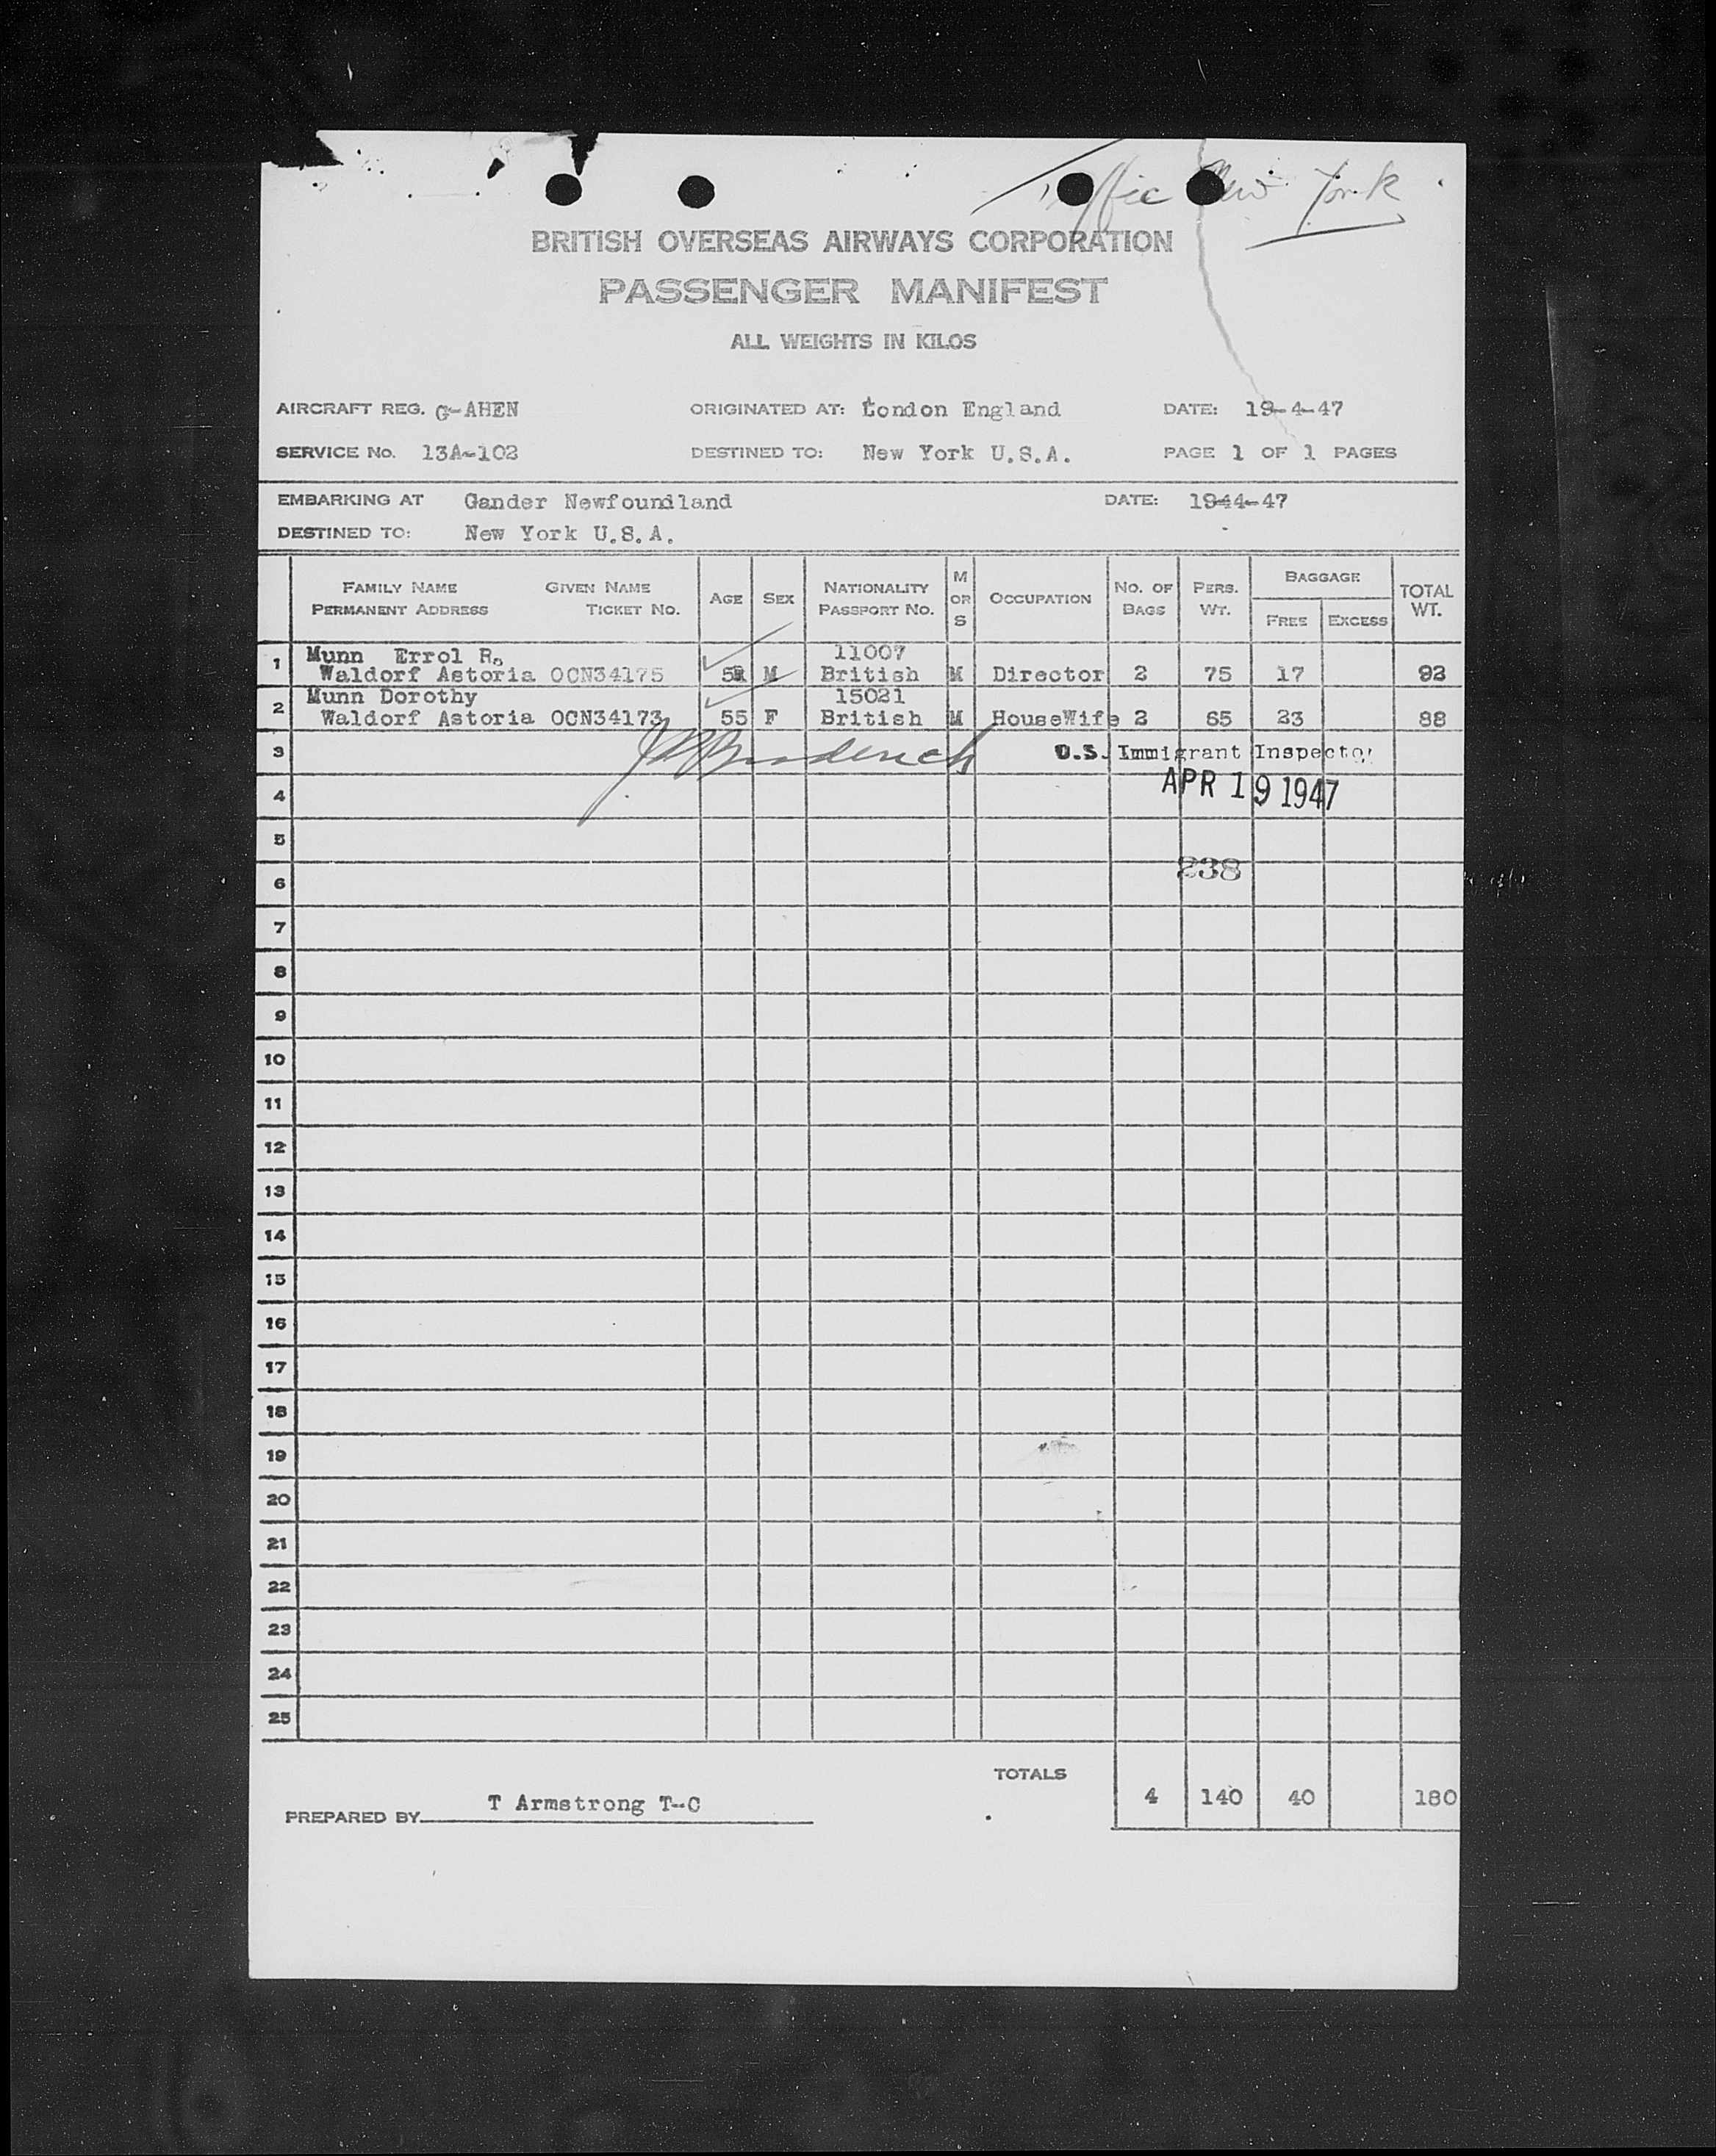 Traffic New York
BRITISH OVERSEAS AIRWAYS CORPORATION
PASSENGER MANIFEST
ALL WEIGHTS IN KILOS
AIRCRAFT REG. G-AHEN ORIGINATED AT: London England DATE: 19-4-47
SERVICE No. 13A-102 DESTINED TO: New York U.S.A. PAGE 1 OF 1 PAGES
EMBARKING AT Gander Newfoundland DATE: 1944-47
DESTINED TO: New York U.S.A.
FAMILY NAME GIVEN NAME PERMANENT ADDRESS TICKET No. AGE SEX NATIONALITY PASSPORT No. M OR S OCCUPATION No. OF BAGS PERS. WT. BAGGAGE FREE EXCESS TOTAL WT.
1 Munn Errol R. 11007
Waldorf Astoria OCN34175 M British M Director 2 75 17 92
2 Munn Dorothy 15021
Waldorf Astoria OCN34173 55 F British M HouseWife 2 65 23 88
3 U.S. Immigrant Inspector
4 APR 19 1947
5
238
6
7
8
9
10
11
12
13
14
15
16
17
18
19
20
21
22
23
24
25
TOTALS 4 140 40 180
PREPARED BY T Armstrong T-C